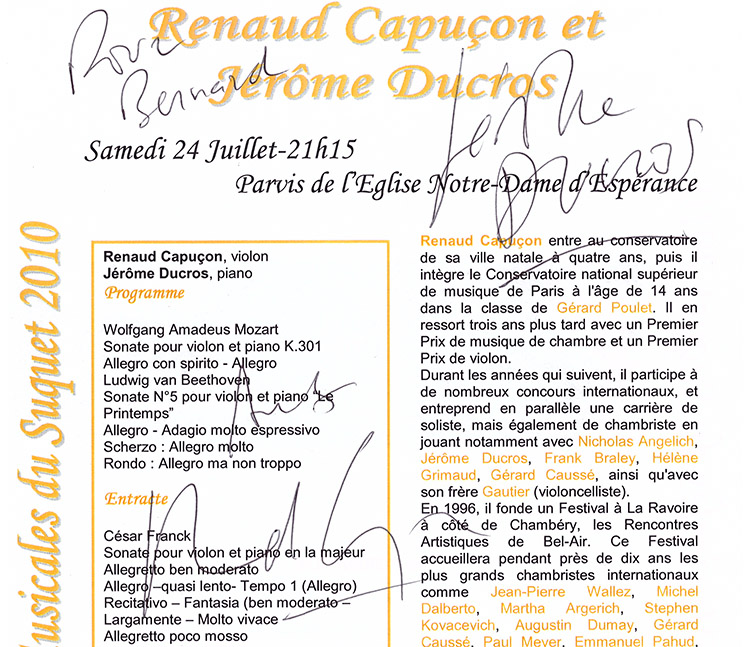 Renaud Capuçon et
Jérôme Ducros
Pour
Bernard
Jérôme
Ducros
Samedi 24 Juillet-21h15
Parvis de l'Eglise Notre-Dame d'Espérance
usicales du Suquet 2010
Renaud Capuçon, violon
Jérôme Ducros, piano
Programme
Wolfgang Amadeus Mozart
Sonate pour violon et piano K.301
Allegro con spirito - Allegro
Ludwig van Beethoven
Sonate N°5 pour violon et piano “Le
Printemps”
Allegro - Adagio molto espressivo
Scherzo : Allegro molto
Rondo : Allegro ma non troppo
Entracte
César Franck
Sonate pour violon et piano en la majeur
Allegretto ben moderato
Allegro –quasi lento- Tempo 1 (Allegro)
Recitativo – Fantasia (ben moderato –
Largamente – Molto vivace
Allegretto poco mosso
Renaud Capuçon entre au conservatoire
de sa ville natale à quatre ans, puis il
intègre le Conservatoire national supérieur
de musique de Paris à l'âge de 14 ans
dans la classe de Gérard Poulet. Il en
ressort trois ans plus tard avec un Premier
Prix de musique de chambre et un Premier
Prix de violon.
Durant les années qui suivent, il participe à
de nombreux concours internationaux, et
entreprend en parallèle une carrière de
soliste, mais également de chambriste en
jouant notamment avec Nicholas Angelich,
Jérôme Ducros, Frank Braley, Hélène
Grimaud, Gérard Caussé, ainsi qu'avec
son frère Gautier (violoncelliste).
En 1996, il fonde un Festival à La Ravoire
à côté de Chambéry, les Rencontres
Artistiques de Bel-Air. Ce Festival
accueillera pendant près de dix ans les
plus grands chambristes internationaux
comme Jean-Pierre Wallez, Michel
Dalberto, Martha Argerich, Stephen
Kovacevich, Augustin Dumay, Gérard
Caussé, Paul Meyer, Emmanuel Pahud,